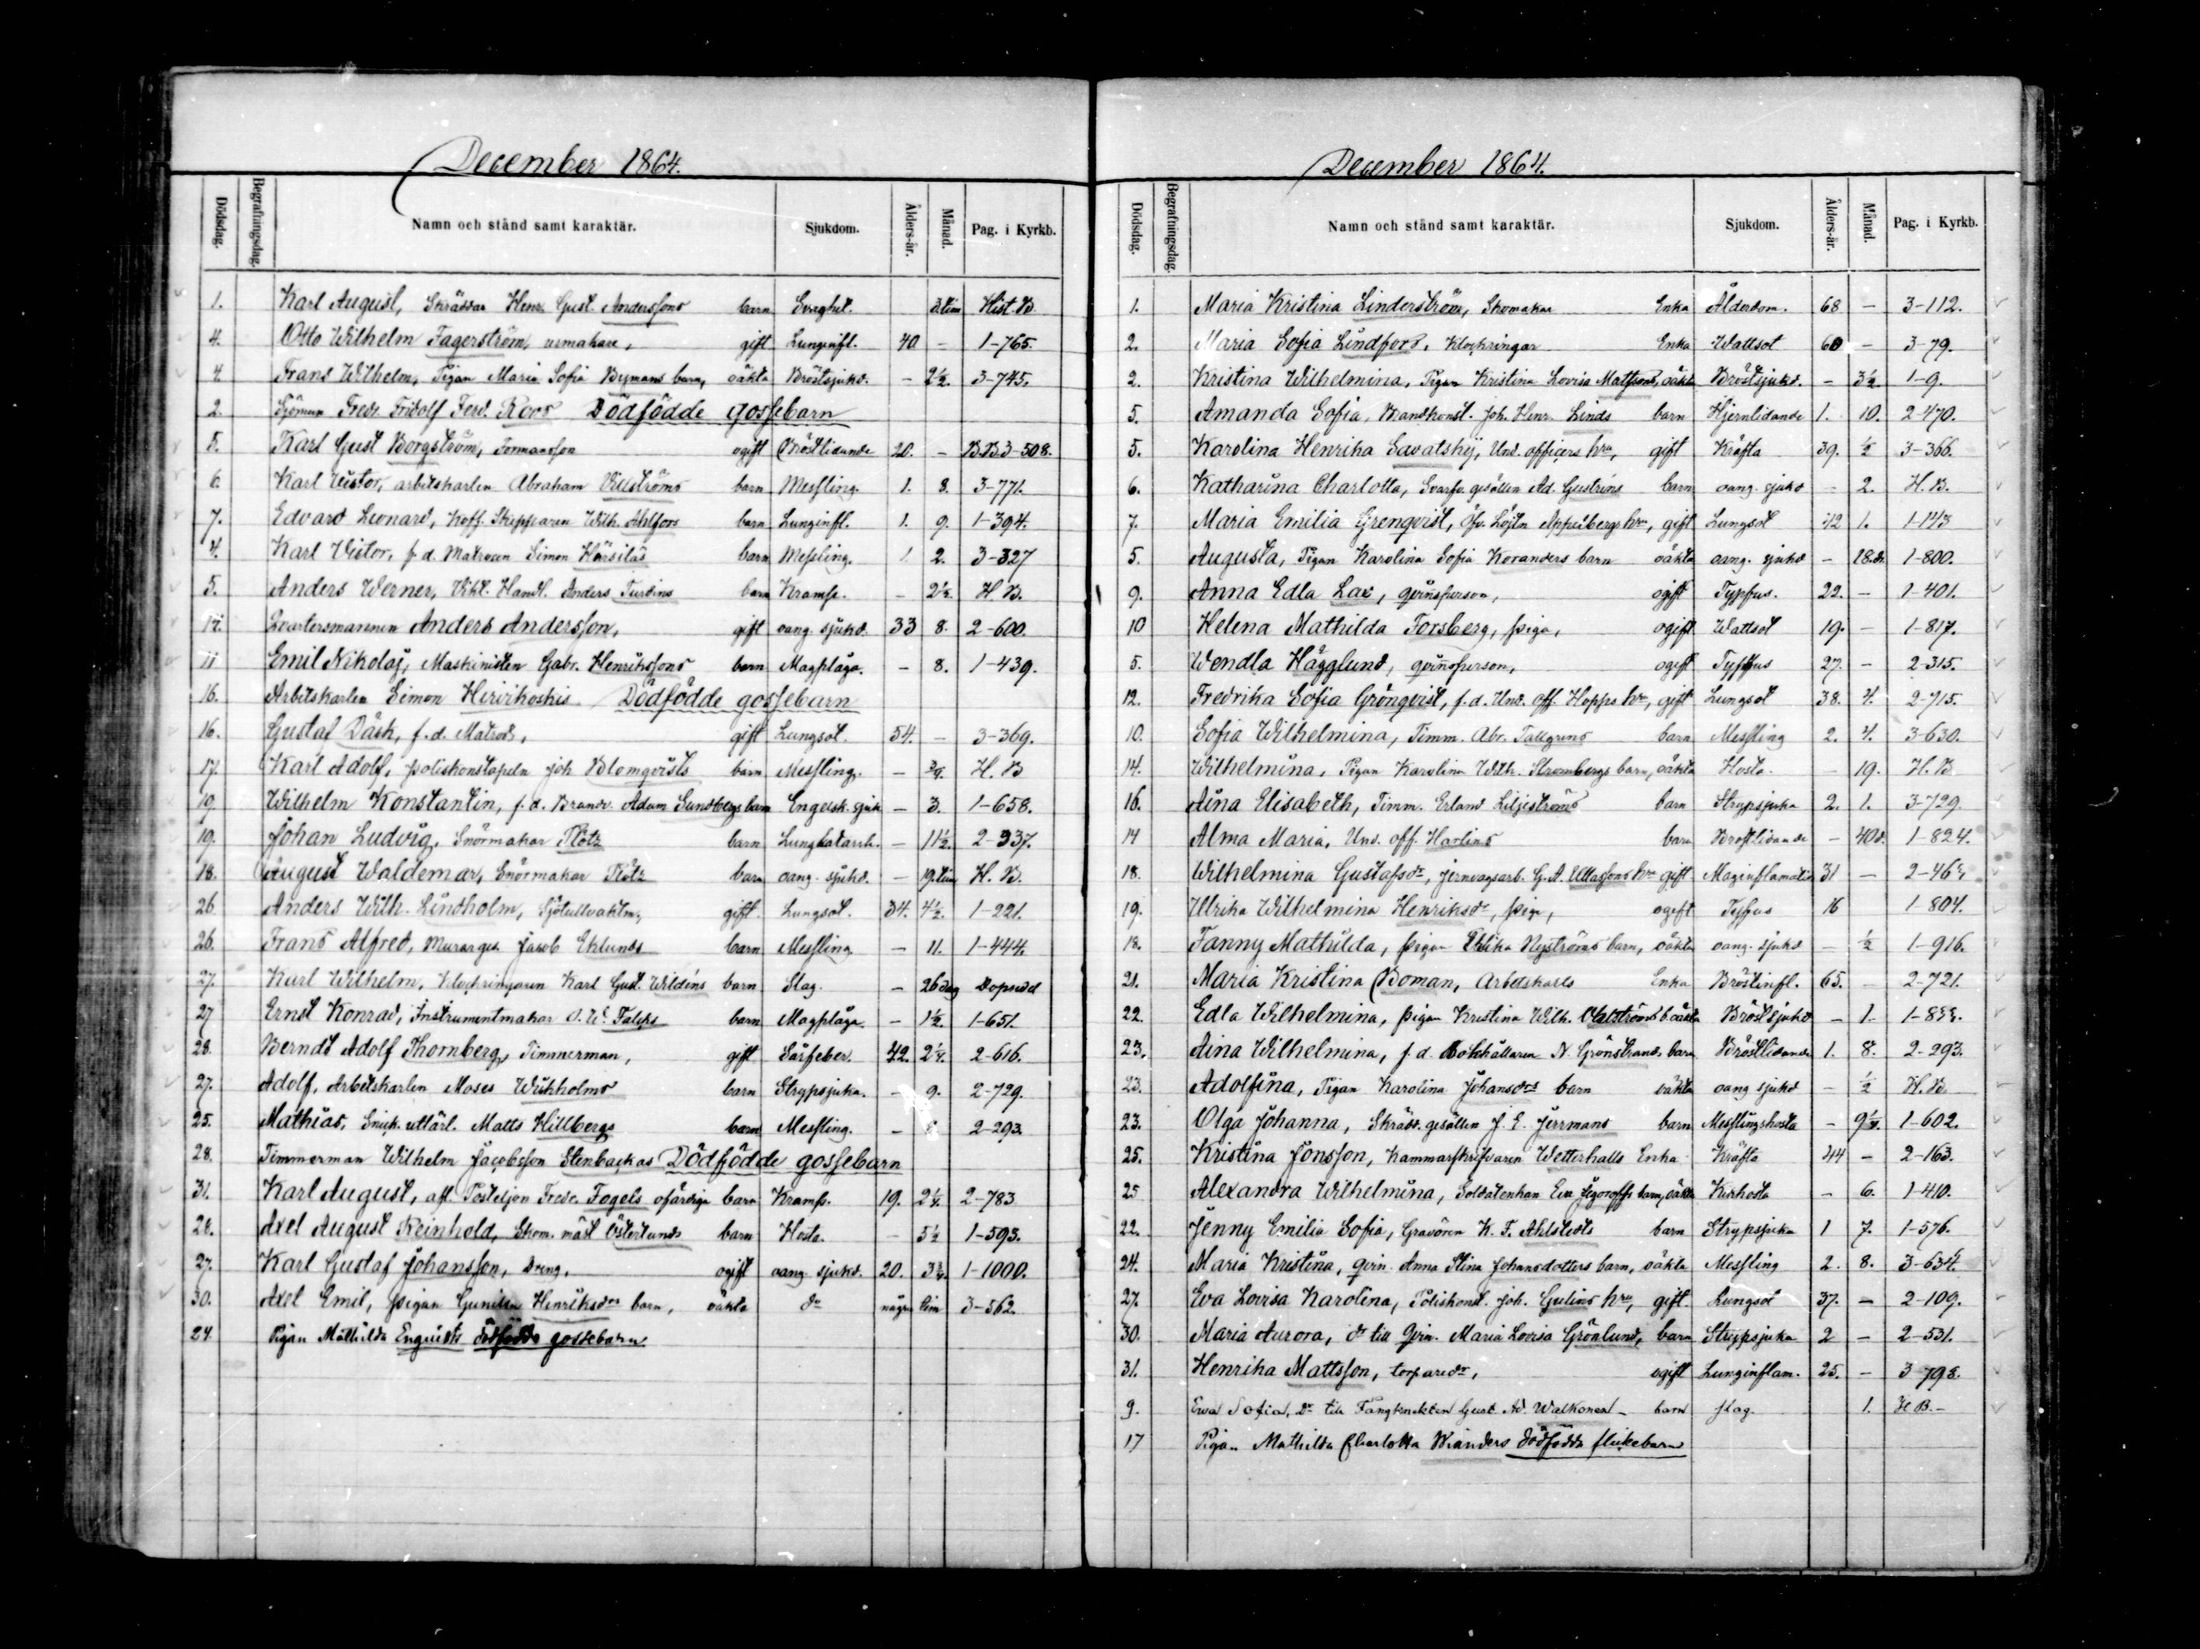 December 1864.
Dödsdag. Begrafningsdag. Namn och stånd samt karaktär. Sjukdom. Ålders-år. Månad. Pag. i Kyrkb.
1. Karl August, Skräddar Henr. Gust. Anderssons barn 3 tim Hist. B.
4. Otto Wilhelm Fagerström, urmakare, gift Lunginfl. 40 - 1-765.
4 Frans Wilhelm, Pigan Maria Sofia Nymans barn, oäkta Bröstsjukd. - 2½. 3-745.
2. Sjöman Fredr. Fridolf Ferd. Roos Dödfödde gossebarn
5. Karl Gust Borgström, Formansson ogift Bröstlidande 20. - B.B.3-508.
6. Karl Victor, arbetskarlen Abraham barn Messling. 1. 8. 3-771.
7. Edvard Leonard, Koff. Skepparen Wilh. Ahlfors barn Lunginfl. 1. 9. 1-394.
4. Karl Victor, f.d. Matrosen Simon barn Messling. 1 2. 3-327
5. Anders Werner, Vikt. Handl. Anders barn Kramp. - 2½. H.B.
14. Qvartersmannen Anders Andersson, gift oang. sjukd. 33 8. 2-600.
11 Emil Nikolaj, Maskinisten Gabr. Henrikssons barn Magplåga. - 8. 1-439.
16. Arbetskarlen Simon Hirvikoskis Dödfödde gossebarn
16. Gustaf Dåsk, f.d. Matros, gift Lungsot. 54. - 3-369.
17. Karl Adolf, poliskonstapeln Joh Blomqvists barn Messling. - ¾. H.B
19. Wilhelm Konstantin, f.d. Brandv. Adam Sundbergs barn Engelsk. sjuk - 3. 1-658.
19. Johan Ludvig, Snörmakar Flotz barn Lungkatarrh. - 11½. 2-337.
18. August Waldemar, Snörmakar Flotz barn oang. sjukd. - 19 tim H.B.
26 Anders Wilh. Lindholm, Sjötullvaktm, gift. Lungsot. 34. 4½. 1-221.
26. Frans Alfred, Murarges Jacob Eklunds barn Messling - 11. 1-444.
27. Karl Wilhelm, Klockringaren Karl Gust. Wildéns barn Slag. - 26 dag
27 Ernst Konrad, Instrumentmakar Falcks barn Magplåga. - 1½. 1-651.
28. Berndt Adolf Thornberg, Timmerman, gift Sårfeber. 42. 2¼. 2-616.
27. Adolf, Arbetskarlen Moses Wikholms barn Strypsjuka. - 9. 2-729.
25. Mathias, Snick. utlärl. Matts Hillbergs barn Messling. - 2-293
28. Timmerman Wilhelm Jacobsson Stenbackas Dödfödde gossebarn
31. Karl August, afl. Posteljon Fredr. Fogels ofärdige barn Kramp. 19. 2¼. 2-783
28. Axel August Reinhold, Skom. mäst Österlunds barn Hosta. - 5½ 1-593.
27. Karl Gustaf Johansson, Dreng, ogift oang. sjukd. 20. 3¾. 1-1000.
30. Axel Emil, pigan Gunilla Henriksdrs barn, oäkta do någon tim 3-562.
24. Pigan Mathilda Enqvists dödfödde gossebarn.
December 1864.
Dödsdag. Begrafningsdag. Namn och stånd samt karaktär. Sjukdom. Ålders-år. Månad. Pag. i Kyrkb.
1. Maria Kristina Linderström, Skomakar Enka Ålderdom. 68 - 3-112.
2. Maria Sofia Lindfors, Klockringar Enka Wattsot 60 - 3-79.
2. Kristina Wilhelmina, Pigan Kristina Lovisa Mattsons, oäkta Bröstsjukd. - 3½. 1-9.
5. Amanda Sofia, Brandkonst. Joh. Henr. Linds barn Hjernlidande 1. 10. 2-470.
5. Karolina Henrika Savatskij, Und. officers hru, gift Kräfta 39. ½ 3-366.
6. Katharina Charlotta, Svarfv. gesällen Ad. Gustréns barn oang. sjukd - 2. H.B.
7. Maria Emilia Grenqvist, Öfv. Löjtn Appelbergs hru, gift Lungsot 42 1. 1-143
5. Augusta, Pigan Karolina Sofia Koranders barn oäkta oang. sjukd - 18.d. 1-800.
9. Anna Edla Lax, qvinsperson, ogift Typhus. 22. - 1-401.
10 Helena Mathilda Forsberg, piga, ogift Wattsot 19. - 1-817.
5. Wendla Hägglund, qvinsperson, ogift Typhus 27. - 2-315.
12. Fredrika Sofia Grönqvist, f.d. Und. Off. Hopps hru, gift Lungsot 38. 4. 2-715.
10. Sofia Wilhelmina, Timm. Abr. Tallgrens barn Messling 2. 4. 3-630.
14. Wilhelmina, Pigan Karolina Wilh. Strombergs barn, oäkta Hosta. - 19. H.B
16. Aina Elisabeth, Timm. Erland Liljeströms barn Strypsjuka 2. 1. 3-729.
14 Alma Maria, Und. off. Harlins barn Bröstlidande - 40d. 1-824.
18. Wilhelmina Gustafsdr, jernvägsarb. G.A. hru gift Maginflamation 31 -
19. Ulrika Wilhelmina Henriksdr, piga, ogift Tyfus 16 1-804.
18. Fanny Mathilda, pigan Ulrika Nyströms barn, oäkta oang. sjukd - ½ 1-916.
21. Maria Kristina Boman, Arbetskarls Enka Bröstinfl. 65. - 2-721.
22. Edla Wilhelmina, pigan Kristina Wilh. Bröstsjukd - 1.
23. Aina Wilhelmina, f.d. Bokhållaren N. Grönstrands barn Bröstlidande 1. 8. 2-293.
23. Adolfina, Pigan Karolina Johansdrs barn oäkta oang sjukd - ½ H.B
23. Olga Johanna, Skrädd. gesällen J.E. Jerrmans barn Messlingshosta - 9½. 1-602.
25. Kristina Jonsson, Kammarskrifvaren Wetterhalls Enka Kräfta 44 - 2-163.
25 Alexandra Wilhelmina, Soldatenkan Eva Jegoroffs barn, oäkta Kikhosta - 6. 1-410.
22. Jenny Emilia Sofia, Gravören K.F. Ahlstedts barn Strypsjuka 1 7. 1-576.
24. Maria Kristina, qvin. Anna Stina Johansdotters barn, oäkta Messling 2. 8. 3-634.
27. Eva Lovisa Karolina, Poliskonst. Joh. Gulins hru, gift. Lungsot 37. - 2-109.
30. Maria Aurora, dr till Qvin. Maria Lovisa Grönlund, barn Strypsjuka 2 - 2-531.
31. Henrika Mattsson, torparedr, ogift Lunginflam. 25. - 3
9. Ewa Sofia, Dr till Fångknekten Gust. Ad. Walkonen - barn slag. 1. H.B.-
17 Pigan Mathilda Charlotta Wianders dödfödda flickebarn